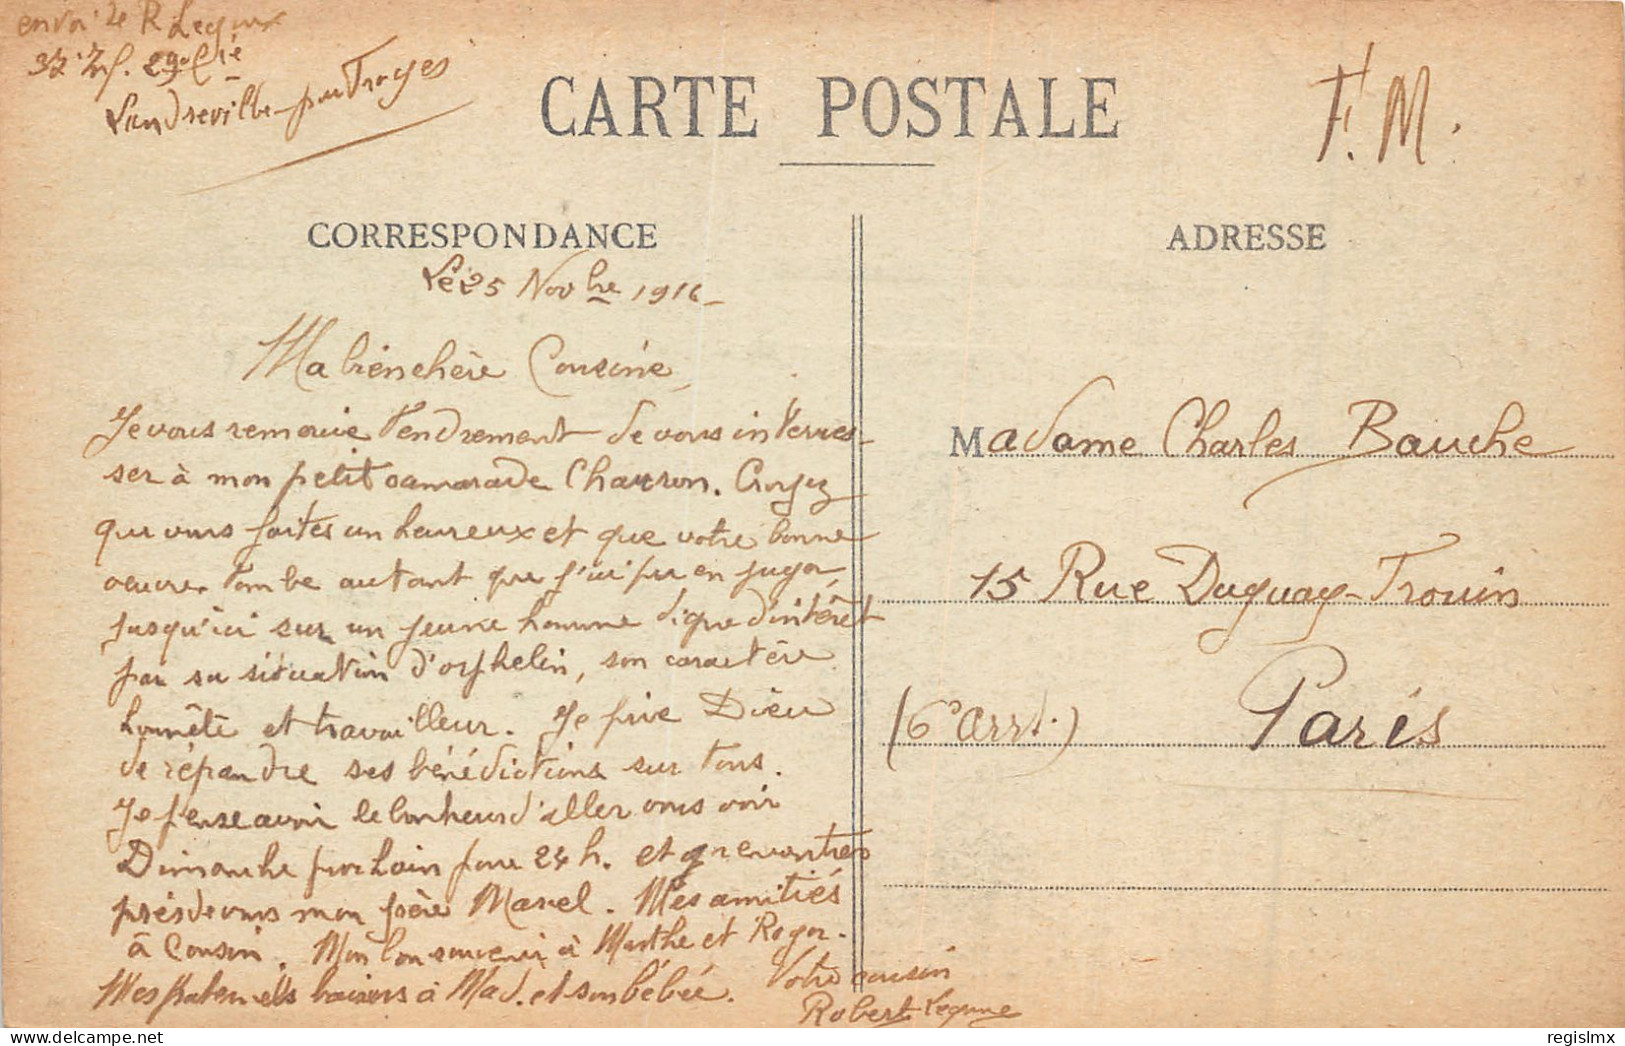 envoi de R Legoux
37 Inf. 29e Cie
Landreville par Troyes
CARTE POSTALE
F. M.
CORRESPONDANCE
Le 25 Novbre 1916
Ma bien chère Cousine
Je vous remercie tendrement de vous interres-
ser à mon petit camarade Charron. Croyez
que vous faites un heureux et que votre bonne
oeuvre tombe autant que j'ai pu en juger
jusqu'ici sur un jeune homme digne d'intérêt
par sa situation d'orphelin, son caractère
honnête et travailleur. Je prie Dieu
de répandre ses bénédictions sur tous.
Je pense avoir le bonheur d'aller vous voir
Dimanche prochain pour 24 h. et rencontrer
près de vous mon frère Marcel. Mes amitiés
à Cousin. Mon bon souvenir à Marthe et Roger.
Mes paternels baisers à Mad. et son bébée. Votre cousin
Robert
ADRESSE
Madame Charles Bauche
15 Rue Duguay-Trouin
(6e arrt.) Paris
regislmx